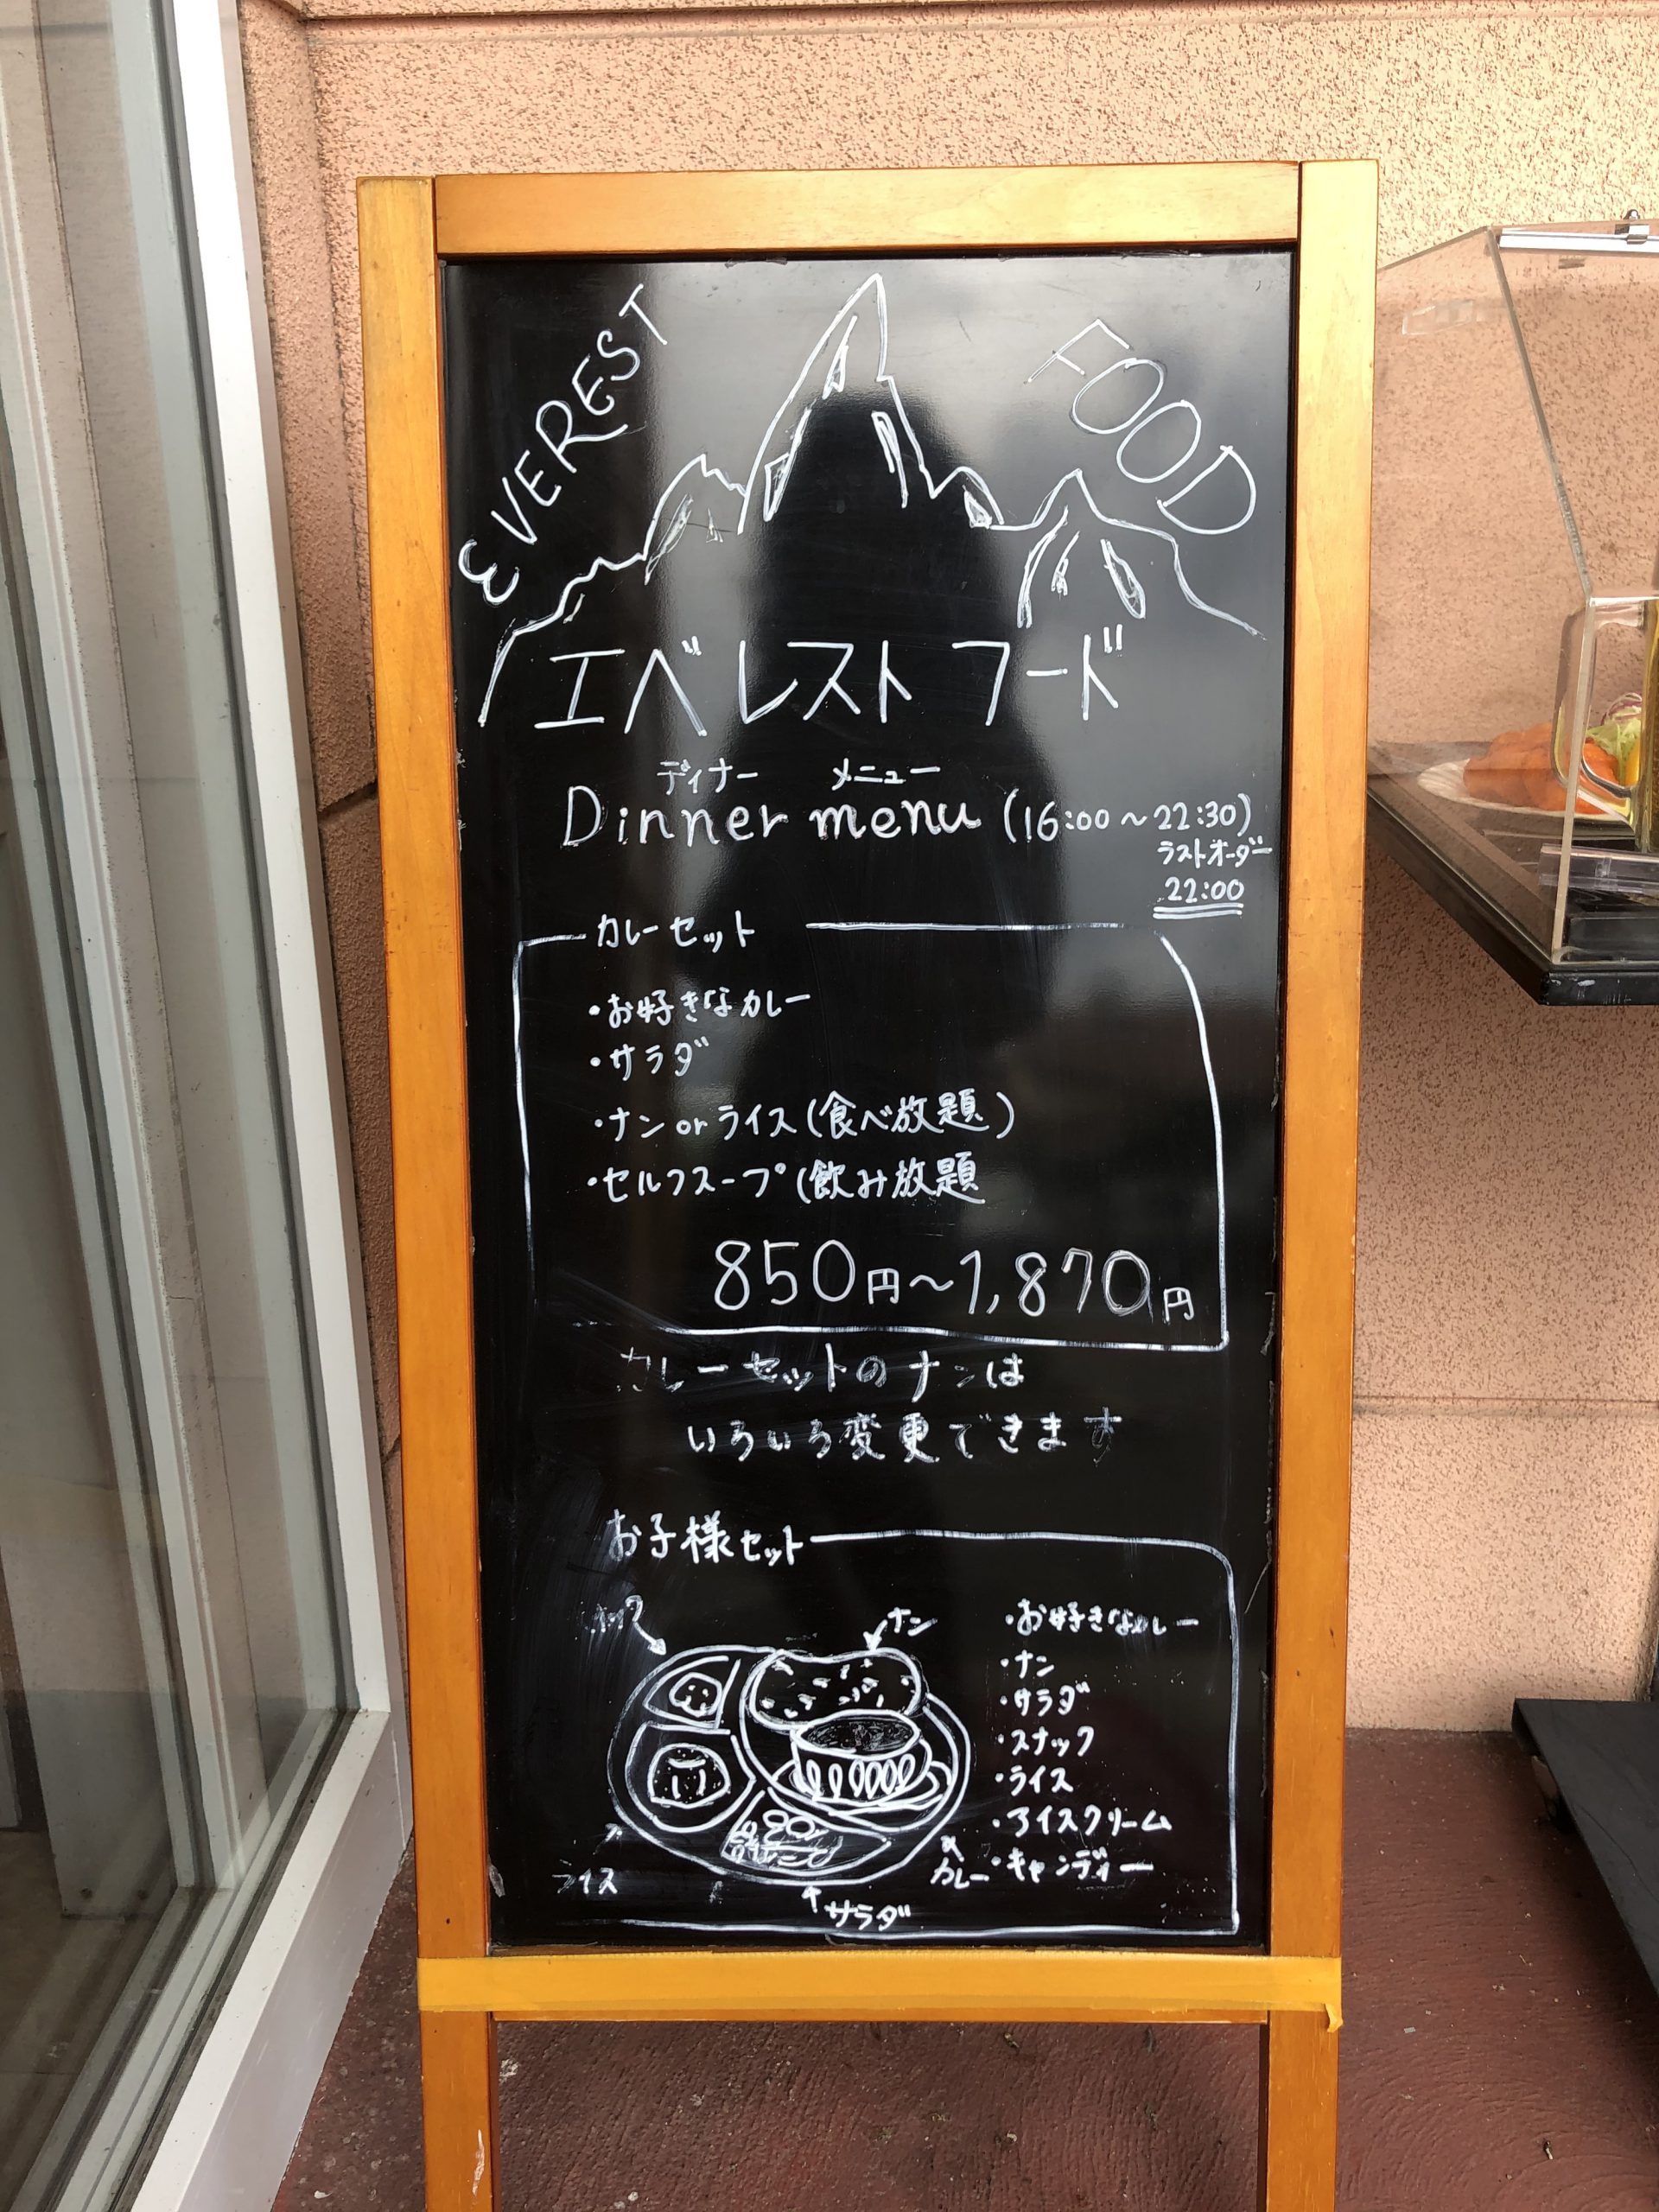 EVEREST FOOD
エベレスト フード
ディナー メニュー
Dinner menu (16:00～22:30)
ラストオーダー
22:00
カレーセット
・お好きなカレー
・サラダ
・ナン or ライス (食べ放題)
・セルフスープ (飲み放題
850円～1,870円
カレーセットのナンは
いろいろ変更できます
お子様セット
ナン
・お好きなカレー
・ナン
・サラダ
・スナック
・ライス
・アイスクリーム
・キャンディー
カレー
ライス
サラダ